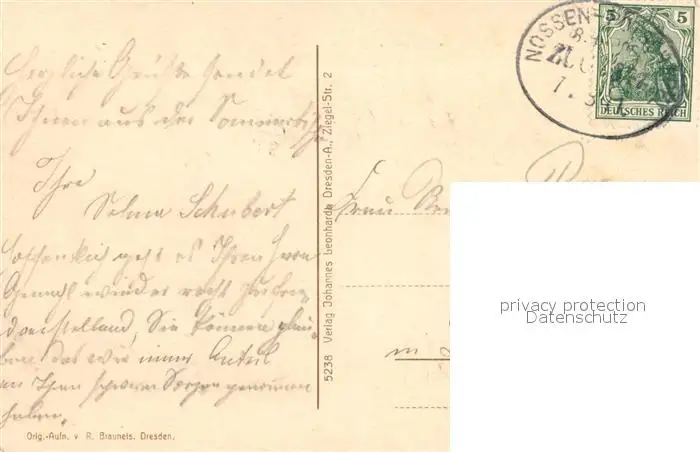 Herzliche Grüße sendet
Ihnen aus der Sommerfrische
Ihre
Selma Schubert
Hoffentlich geht es Ihren Herrn
Gemahl wieder recht
Sie können glau-
ben das wir innen Anteil
an Ihren schweren Sorgen genommen
haben.
Orig.-Aufn. v R. Brauneis. Dresden.
5238 Verlag Johannes Leonhardt Dresden-A., Ziegel-Str. 2
NOSSEN
ZUG
5 5
DEUTSCHES REICH
Frau
privacy protection
Datenschutz